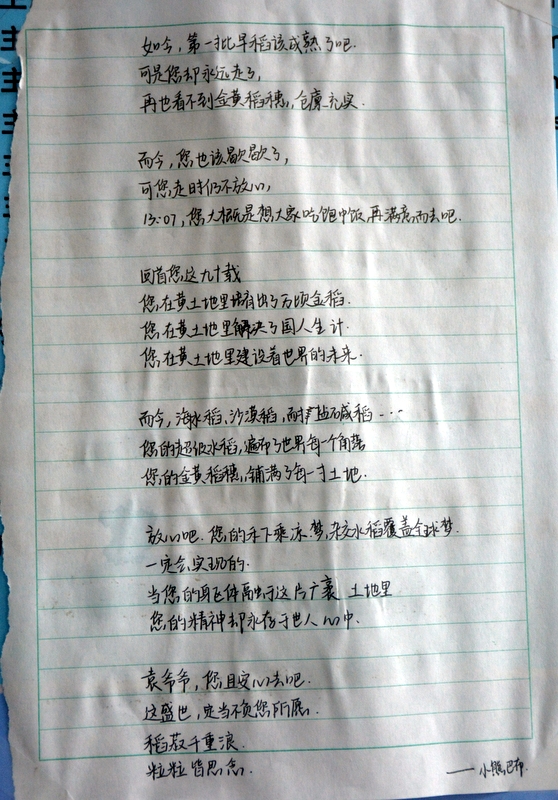 如今，第一批早稻该成熟了吧.
可是您却永远走了，
再也看不到金黄稻穗，仓廪充实.
而今，您也该歇歇了，
可您走时仍不放心，
13:07，您大概是想大家吃饱中饭再满意而去吧.
回首您这九十载
您在黄土地里培育出了万顷金稻.
您在黄土地里解决了国人生计.
您在黄土地里建设着世界的未来.
而今，海水稻、沙漠稻，耐盐碱稻...
您的超级水稻，遍布了世界每一个角落
您的金黄稻穗，铺满了每一寸土地.
放心吧.您的禾下乘凉梦，杂交水稻覆盖全球梦.
一定会实现的.
当您的身体离开这片广袤 土地里
您的精神却永存于世人心中.
袁爷爷，您且安心去吧.
这盛世，定当不负您所愿.
稻菽千重浪.
粒粒皆思念.
——小熊巴布